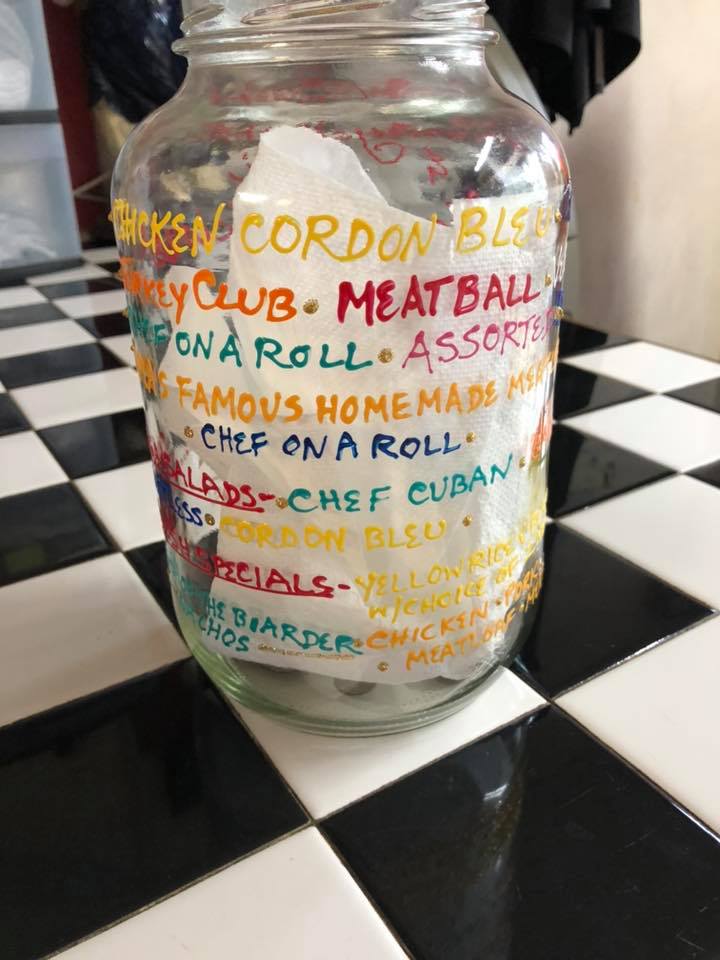 CHICKEN CORDON BLEU
TURKEY CLUB • MEATBALL •
ON A ROLL • ASSORTED
FAMOUS HOMEMADE
• CHEF ON A ROLL •
SALADS - • CHEF CUBAN •
• CORDON BLEU •
SPECIALS - YELLOW RICE
W/CHOICE OF
THE BOARDER • CHICKEN •
• MEATLOAF •